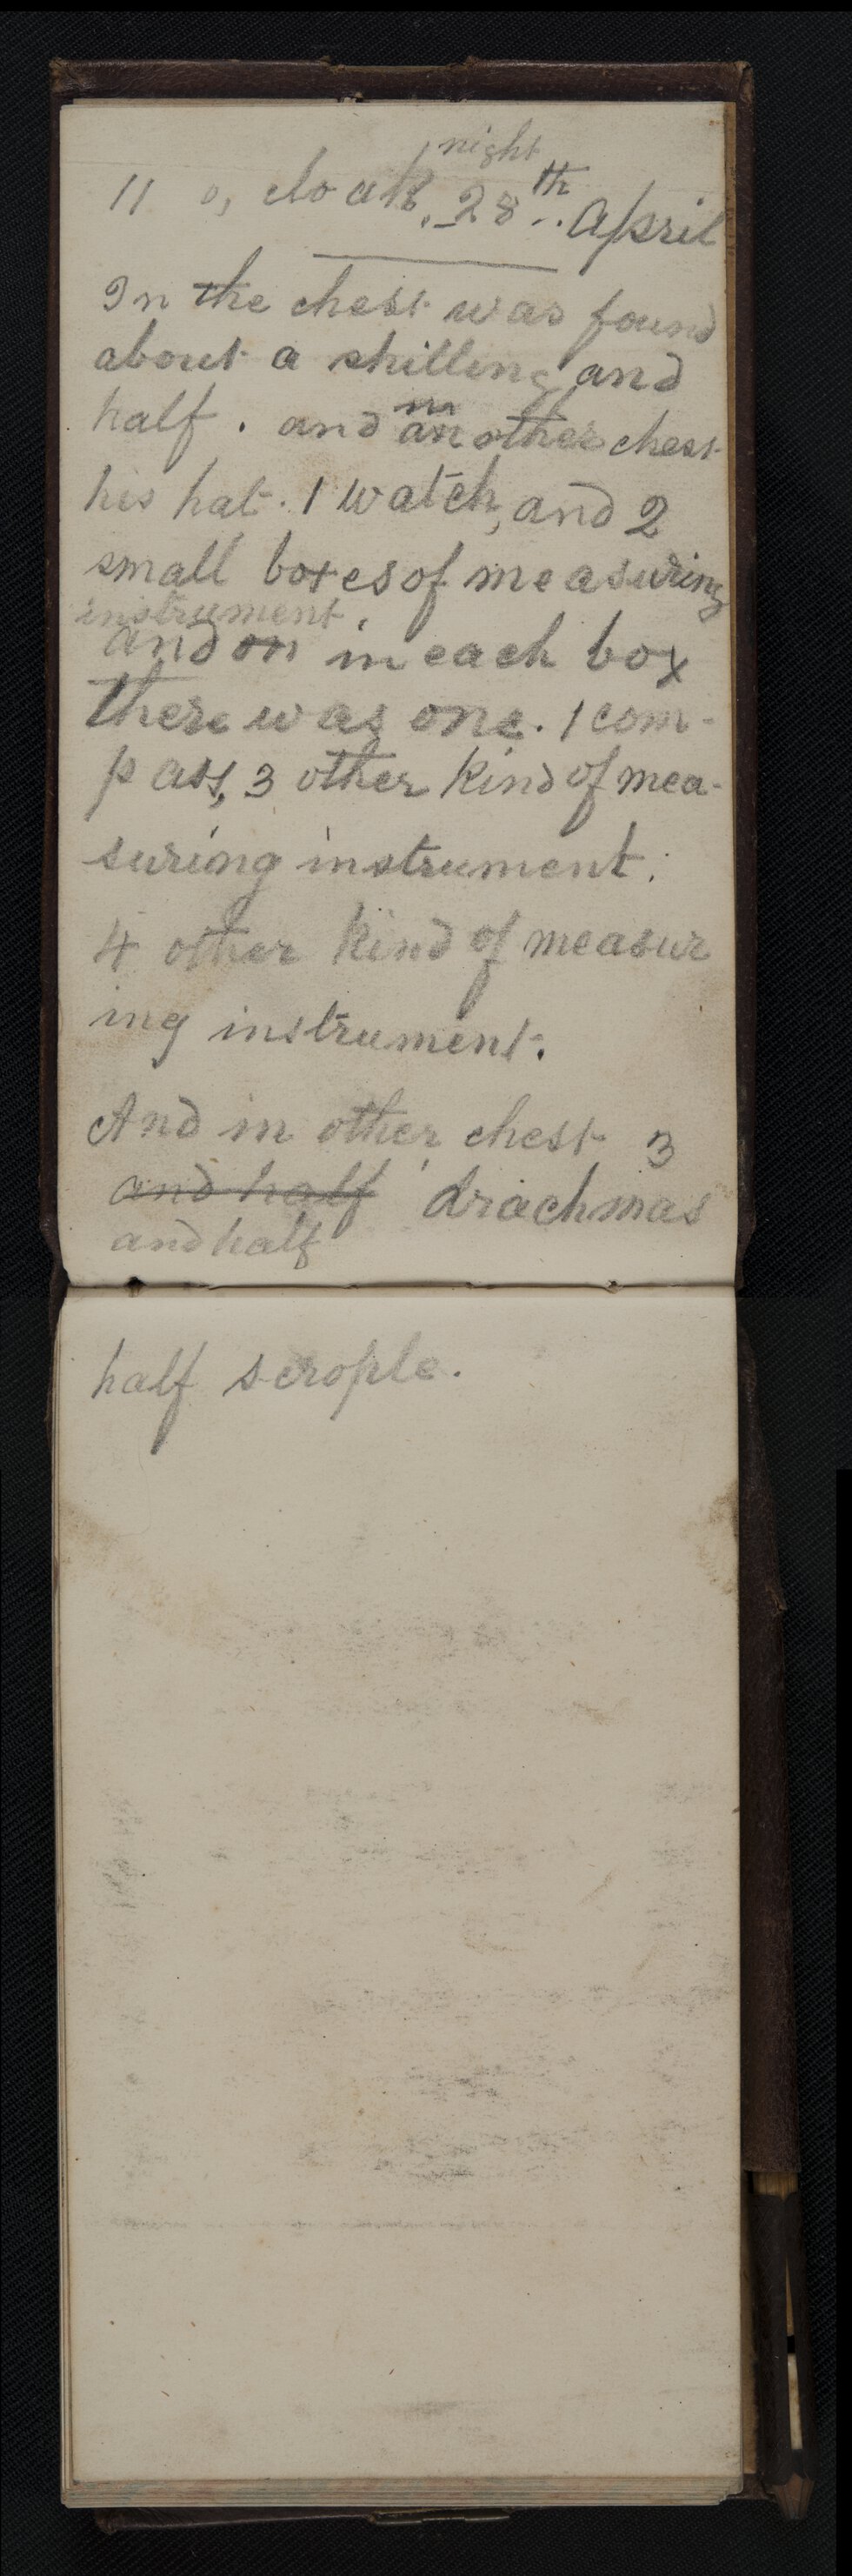 night
11 o, cloak, 28th. April
In the chest was found
about a shilling and
half. and an other chest
his hat. 1 watch, and 2
small boxes of measuring
instrument.
and on in each box
there was one. 1 com-
pass, 3 other kind of mea-
suring instrument.
4 other kind of measur
ing instrument.
And in other chest 3
and half drachmas
and half
half scrople.